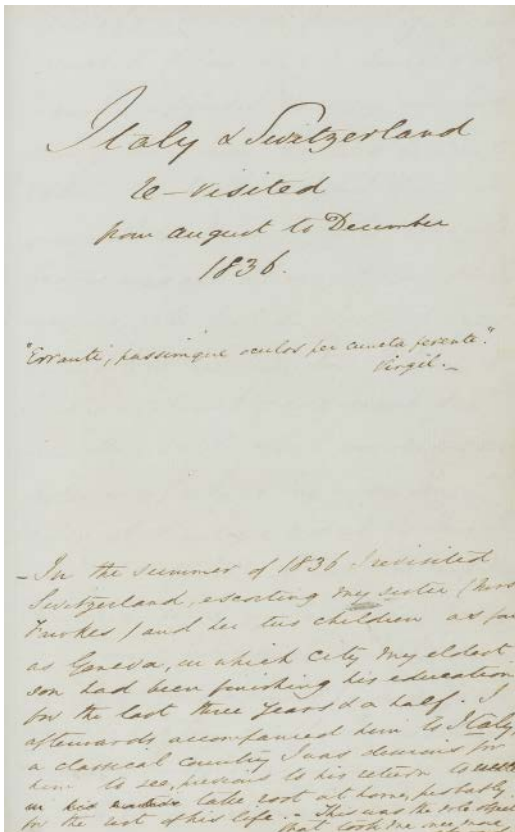 Italy & Switzerland
re-visited
from August to December
1836.
"Erranti, passimque oculos per cuncta ferenti."
Virgil. _
- In the summer of 1836 I revisited
Switzerland, escorting my sister (Mrs
) and her two children as far
as Geneva, in which City my eldest
son had been finishing his education
for the last three years & a half. I
afterwards accompanied him to Italy,
a classical country I was desirous for
him to see, previous to his return to
take root at home, probably,
for the rest of his life. - This was the sole object
that me once more